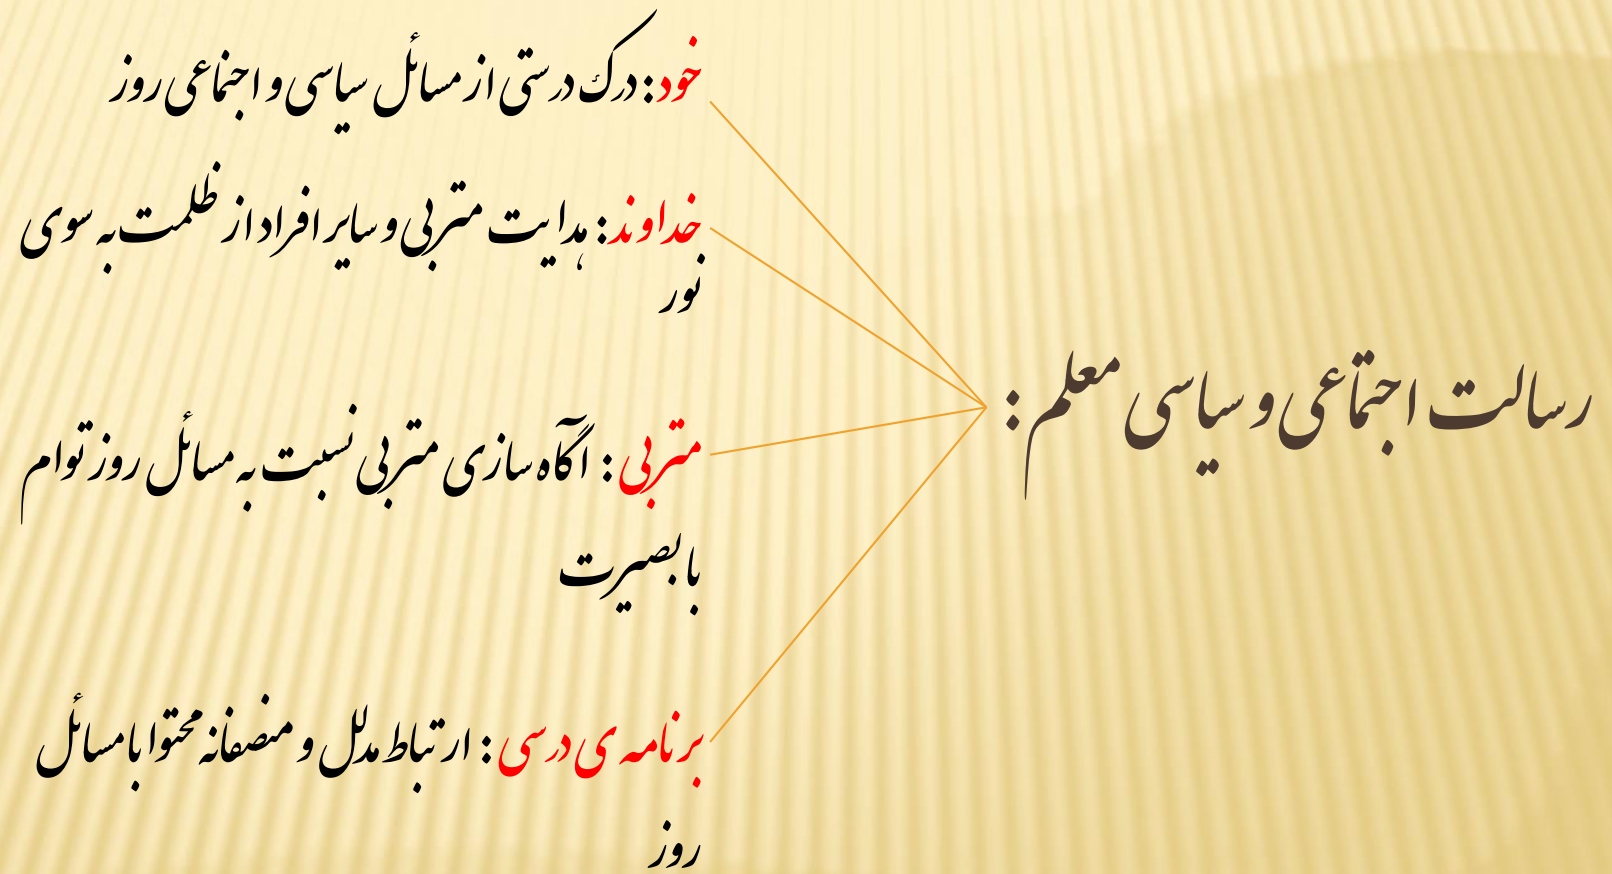 رسالت اجتماعی و سیاسی معلم :
خود: درک درستی از مسائل سیاسی و اجتماعی روز
خداوند: هدایت متربی و سایر افراد از ظلمت به سوی
نور
متربی : آگاه سازی متربی نسبت به مسائل روز توام
با بصیرت
برنامه ی درسی : ارتباط مدلل و منصفانه محتوا با مسائل
روز